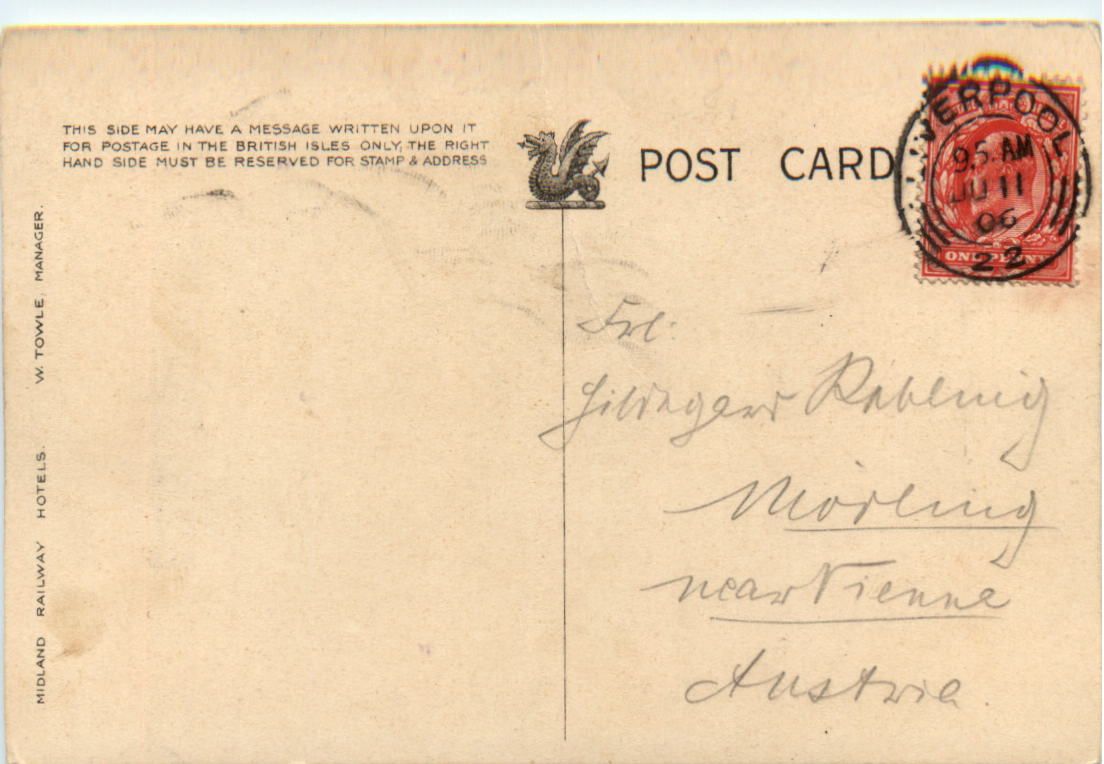 THIS SIDE MAY HAVE A MESSAGE WRITTEN UPON IT
FOR POSTAGE IN THE BRITISH ISLES ONLY, THE RIGHT
HAND SIDE MUST BE RESERVED FOR STAMP & ADDRESS
MIDLAND RAILWAY HOTELS. W. TOWLE, MANAGER.
POST CARD
LIVERPOOL
9 5. AM
JU 11
06
22
ONE PENNY
Frl:
Hildegard
Mödling
near Vienne
Austria